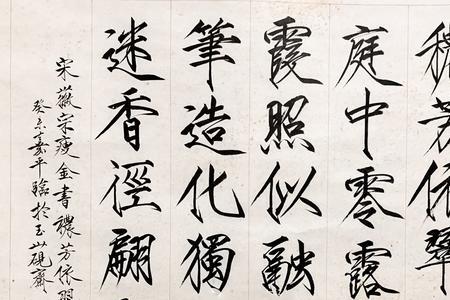 穠芳依翠
庭中零露
霞照似融
筆造化獨
迷香徑翩
宋徽宗瘦金書穠芳依翠
癸未嘉平臨於玉山硯齋